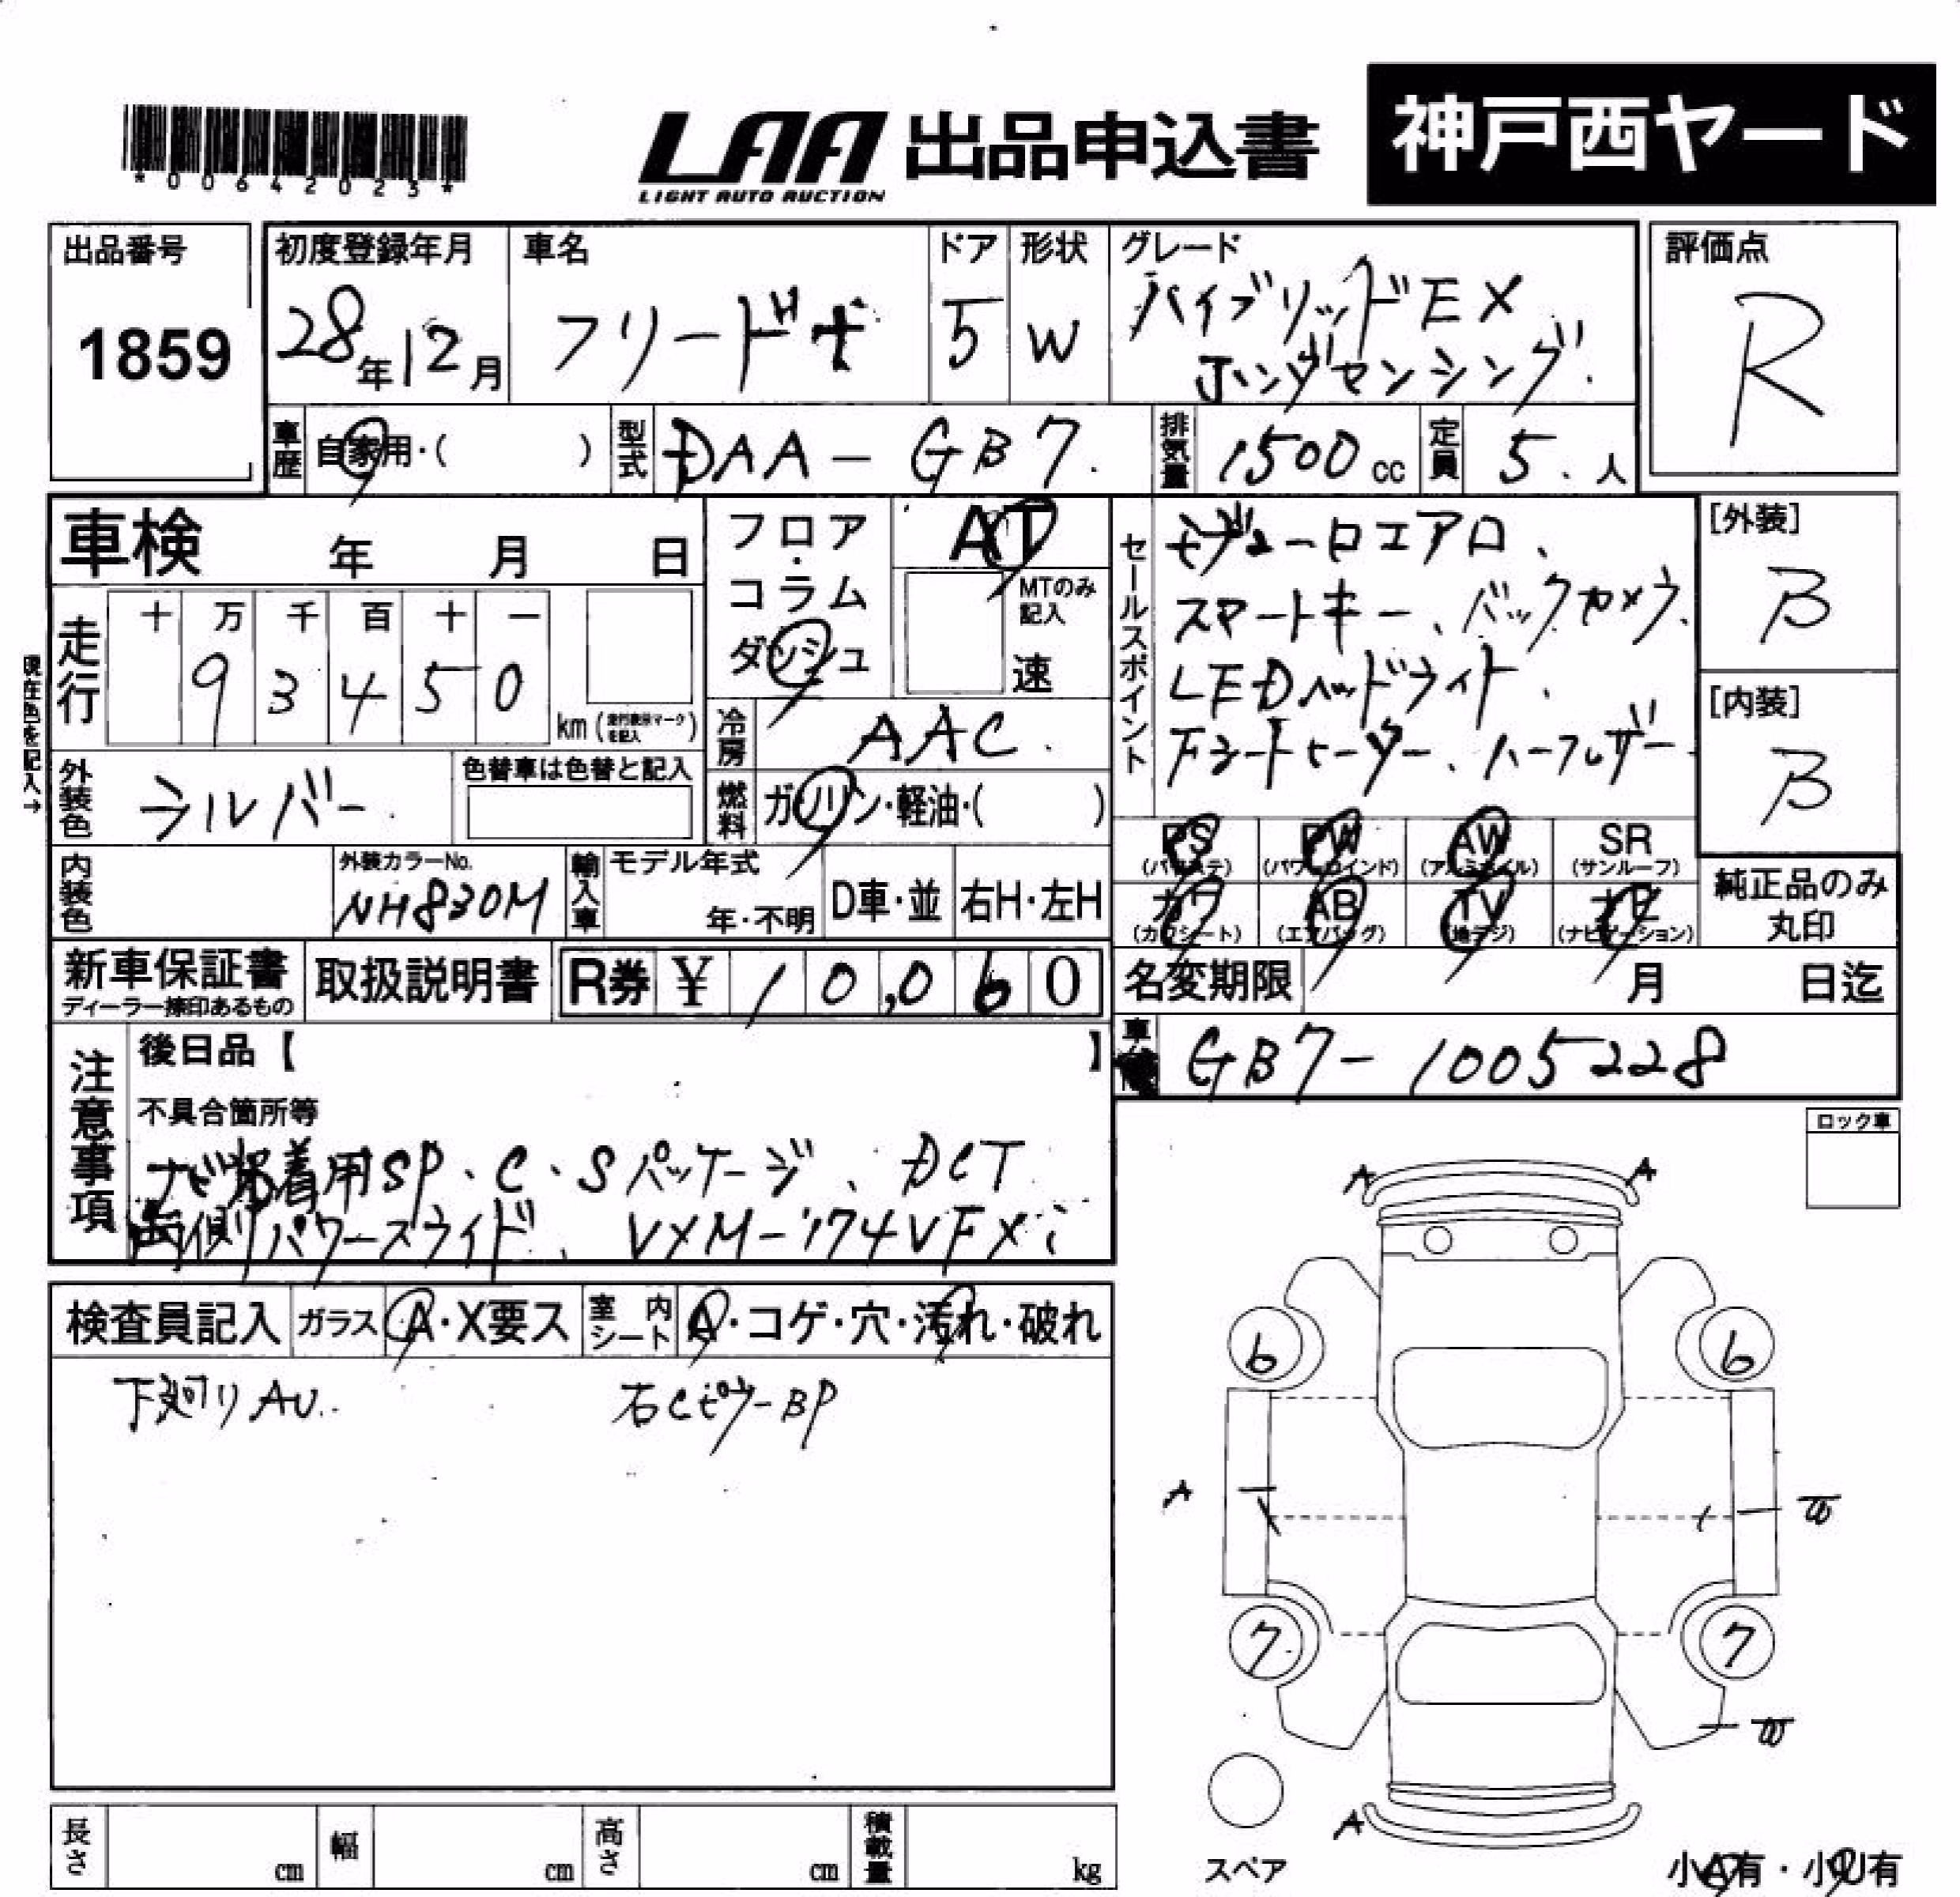 *00642023*
LAA 出品申込書 神戸西ヤード
LIGHT AUTO AUCTION
出品番号 初度登録年月 車名 ドア 形状 グレード 評価点
1859 28年12月 フリード+ 5 W ハイブリッドEX R
ホンダセンシング
車歴 自家用・( ) 型式 DAA-GB7 排気量 1500cc 定員 5人
車検 年 月 日
フロア・コラム ダッシュ AT
MTのみ記入 速
セールスポイント
モデューロエアロ、
スマートキー、バックカメラ、
LEDヘッドライト、
Fシートヒーター、ハーフレザー
[外装]
B
[内装]
B
走行 十 万 千 百 十 一
9 3 4 5 0 km (走行表示マークを記入)
現在色を記入→
冷房 AAC
燃料 ガソリン・軽油・( )
外装色 シルバー 色替車は色替と記入
PS (パワステ) PW (パワーウインド) AW (アルミホイル) SR (サンルーフ)
カワ (カワシート) AB (エアバッグ) TV (地デジ) ナビ (ナビゲーション)
純正品のみ
丸印
内装色 外装カラーNo. NH830M 輸入車 モデル年式 年・不明 D車・並 右H・左H
新車保証書 ディーラー捺印あるもの 取扱説明書 R券 ¥ 10,060
名変期限 月 日迄
車台 GB7-1005228
注意事項 後日品【 】
不具合箇所等
ナビ装着用SP、C・Sパッケージ、DCT
両側パワースライド、VXM-174VFXi
ロック車
A A
検査員記入 ガラス A・X要ス 室内シート A・コゲ・穴・汚れ・破れ
下廻りAU 右CピラーBP
6 6
A W
7 7
W
A
スペア
小A有・小U有
長さ cm 幅 cm 高さ cm 積載量 kg